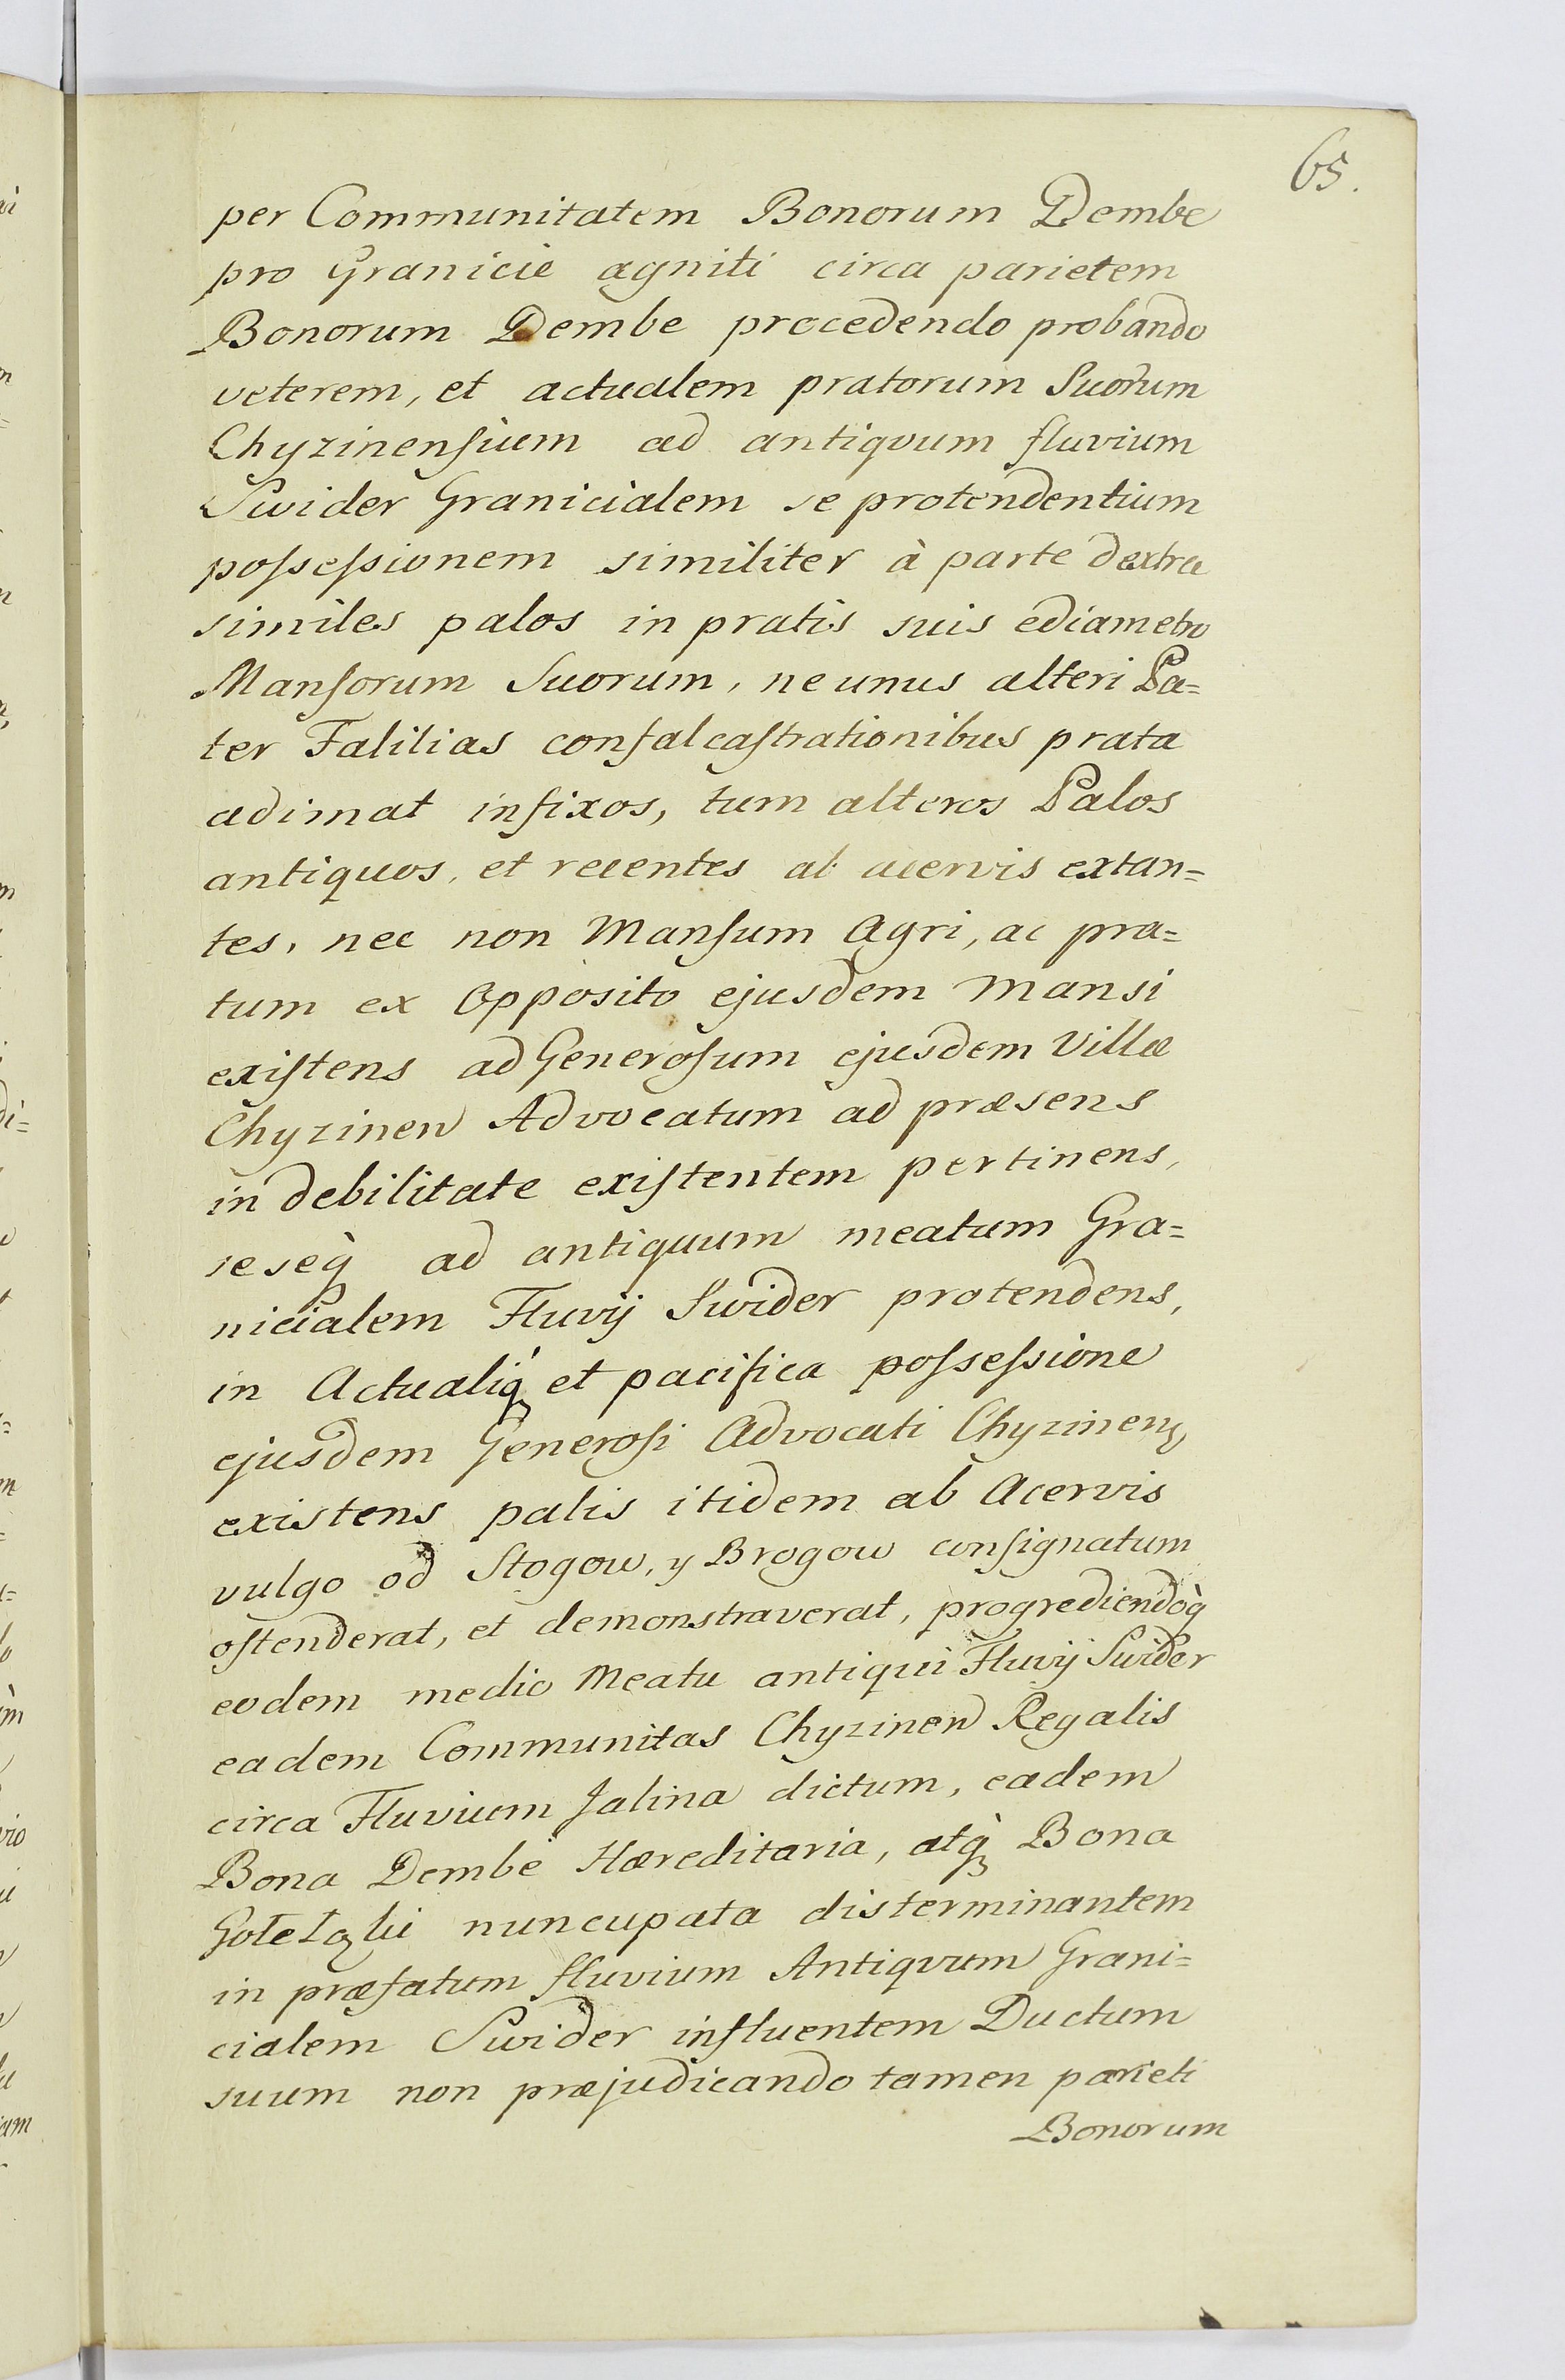 65.
per Communitatem Bonorum Dembe
pro Granicie agniti circa parietem
Bonorum Dembe procedendo probando
veterem, et actualem pratorum Suorum
Chyzinenſium ad antiqvum fluvium
Swider Granicialem se protendentium
poſseſsionem similiter à parte dextra
similes palos in pratis suis ediametro
Manſorum Suorum, ne unus alteri Pa=
ter Falilias confalcaſtrationibus prata
adimat infixos, tum alteros Palos
antiquos, et recentes ab acervis extan=
tes, nec non Manſum Agri, ac pra=
tum ex Opposito ejusdem Mansi
exiſtens ad Generoſum ejusdem Villæ
Chyzinen Advocatum ad præsens
in debilitate exiſtentem pertinens,
seseq̀ ad antiquum meatum Gra=
nicialem Fluvij Swider protendens,
in Actualiq̀ et pacifica poſseſsione
ejusdem Generoſi Advocati Chyzinens
existens palis itidem ab Acervis
vulgo od Stogow, y Brogow conſignatum
oſtenderat, et demonstraverat, progrediendoq̀
eodem medio Meatu antiqui Fluvij Swider
eadem Communitas Chyzinen Regalis
circa Fluvium Jalina dictum, eadem
Bona Dembe Hæreditaria, atq̀ Bona
nuncupata disterminantem
in præfatum fluvium Antiqvum Grani=
cialem Swider influentem Ductum
suum non præjudicando tamen parieti
Bonorum